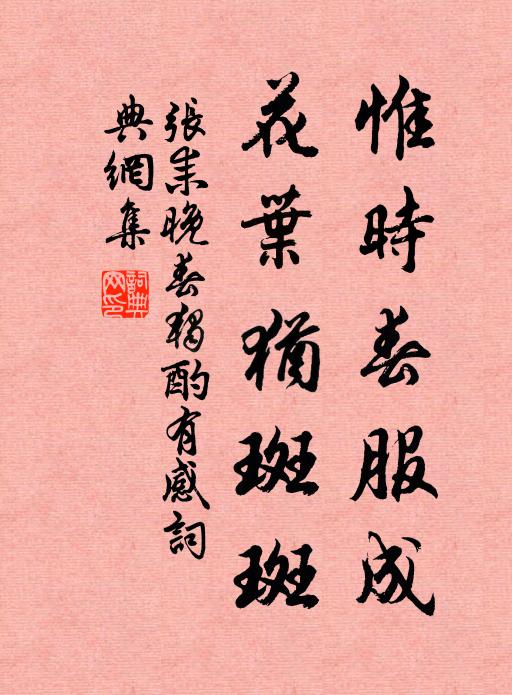 惟時春服成
花葉猶斑斑
張耒晚春獨酌有感詞
典網集
詞典網印